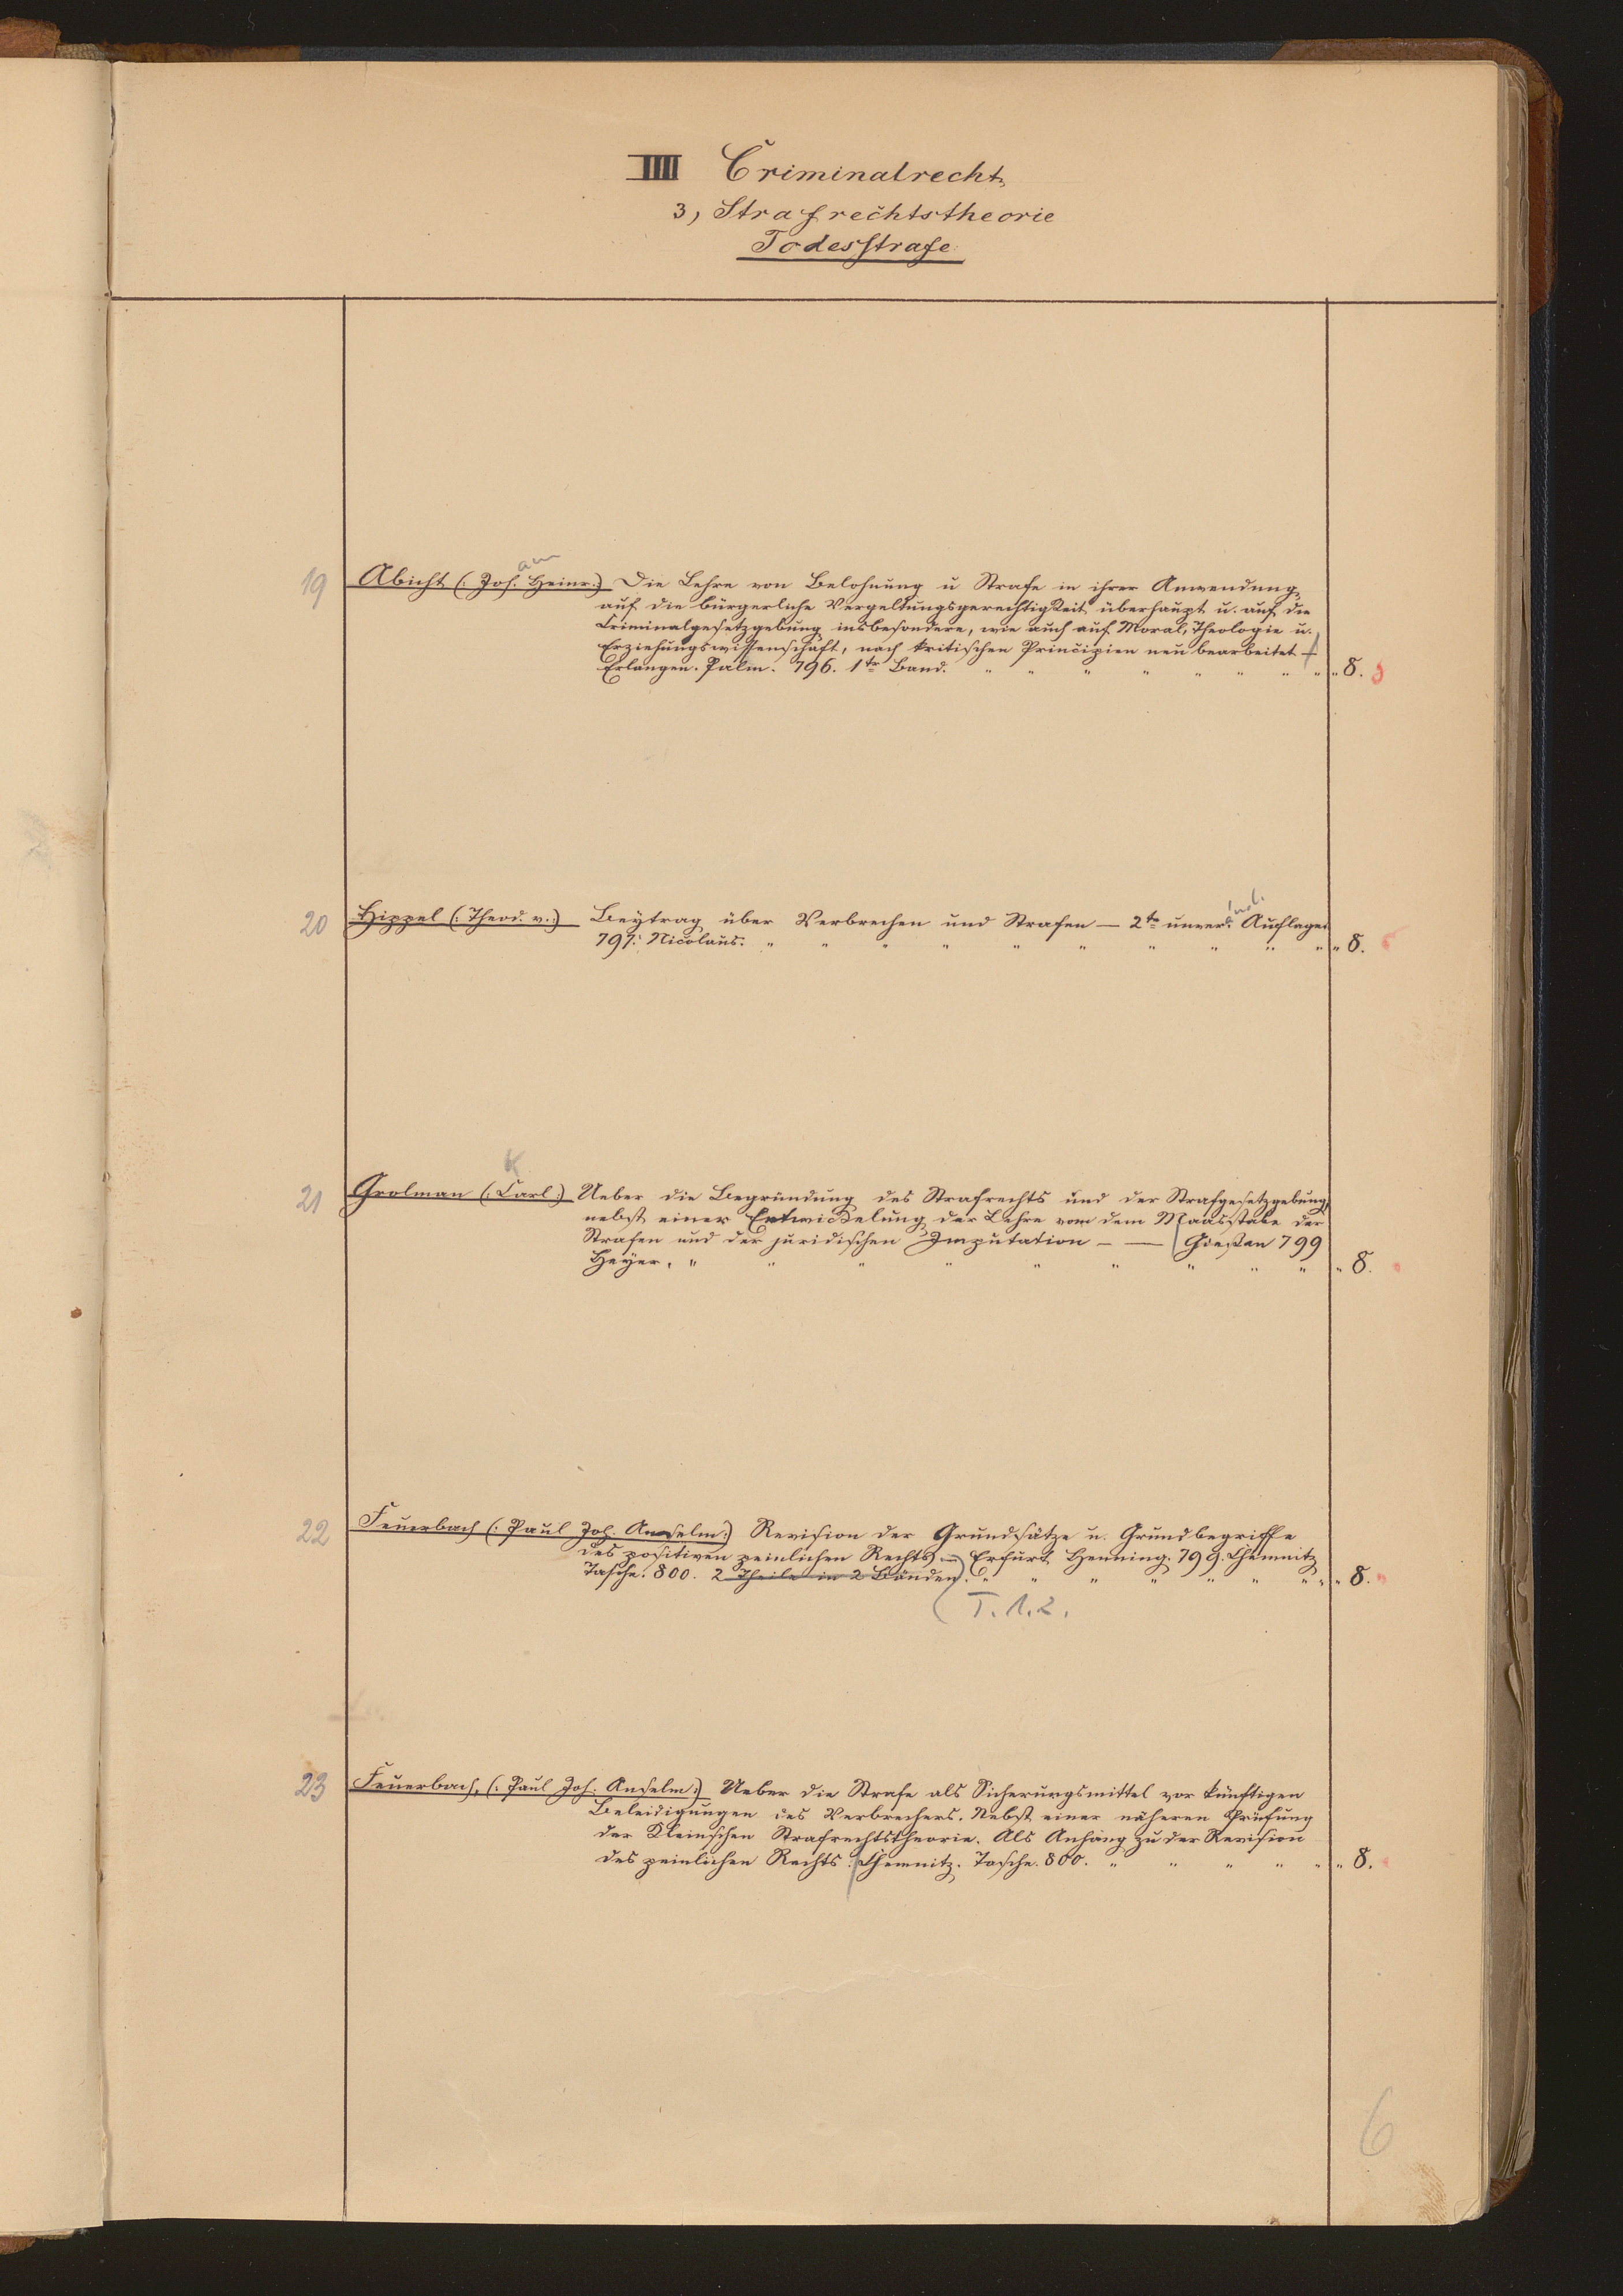 IIII Criminalrecht,
3, Strafrechtstheorie
Todesstrafe
am
19 Abicht (: Joh. Heinr:) Die Lehre von Belohnung u Strafe in ihrer Anwendung
auf die bürgerliche Vergeltungsgerechtigkeit überhaupt u. auf die
Criminalgesetzgebung insbesondere, wie auch auf Moral, Theologie u.
Erziehungswissenschaft, nach kritischen Principien neu bearbeitet —
Erlangen. Palm. 796. 1tr Band. " " " " " " " " " 8.
änd.
20 Hippel (: Theod. v.:) Beytrag über Verbrechen und Strafen — 2te unver. Auflage
797. Nicolaus. " " " " " " " " " " " 8.
K
21 Grolman (: Carl:) Ueber die Begründung des Strafrechts und der Strafgesetzgebung,
nebst einer Entwickelung der Lehre von dem Maasstabe der
Strafen und der juridischen Imputation — — Gießen 799
Heyer. " " " " " " " " " " 8.
22 Feuerbach (: Paul Joh. Anselm:) Revision der Grundsätze u. Grundbegriffe
des positiven peinlichen Rechts — Erfurt Henning. 799. Chemnitz
Tasche. 800. 2 Theile in 2 Bänden. " " " " " " " " " 8.
T. 1. 2.
23 Feuerbach, (: Paul Joh. Anselm:) Ueber die Strafe als Sicherungsmittel vor künftigen
Beleidigungen des Verbrechers. Nebst einer näheren Prüfung
der Kleinschen Strafrechtstheorie. Als Anhang zu der Revision
des peinlichen Rechts. Chemnitz. Tasche. 800. " " " " " " 8.
6